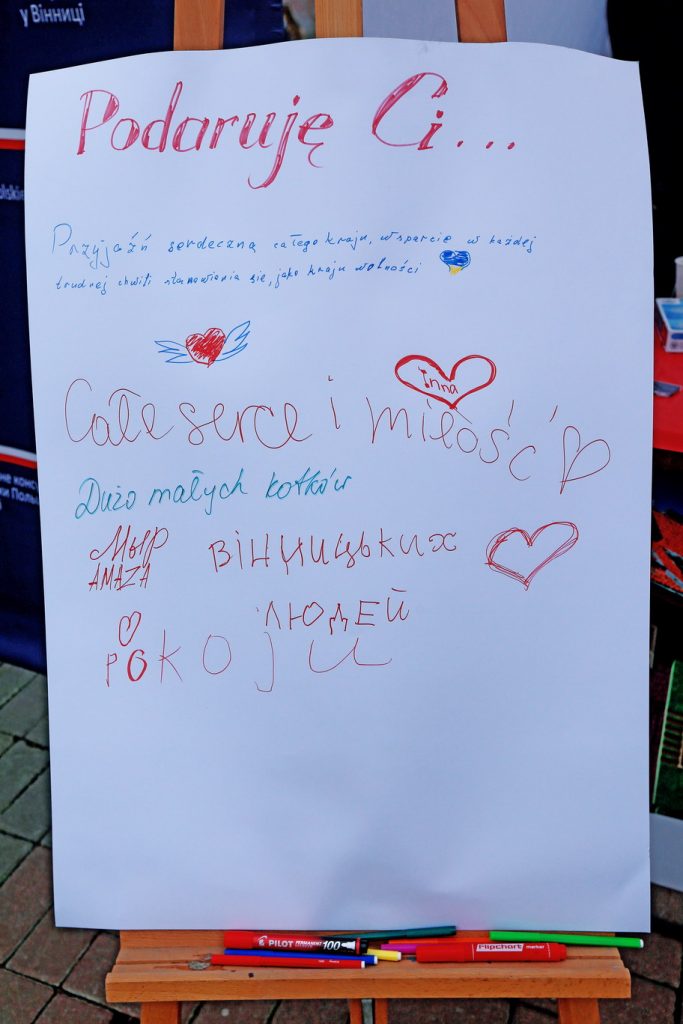 у Вінниці
Podaruję Ci...
Przyjaźń serdeczną całego kraju, wsparcie w każdej
trudnej chwili stanowienia się, jako kraju wolności
Inna
Całe serce i miłość
Dużo małych kotków
Мыр
AMAZA
вінницьких
людей
pokoju
PILOT PERMANENT MARKER 100
Flipchart marker